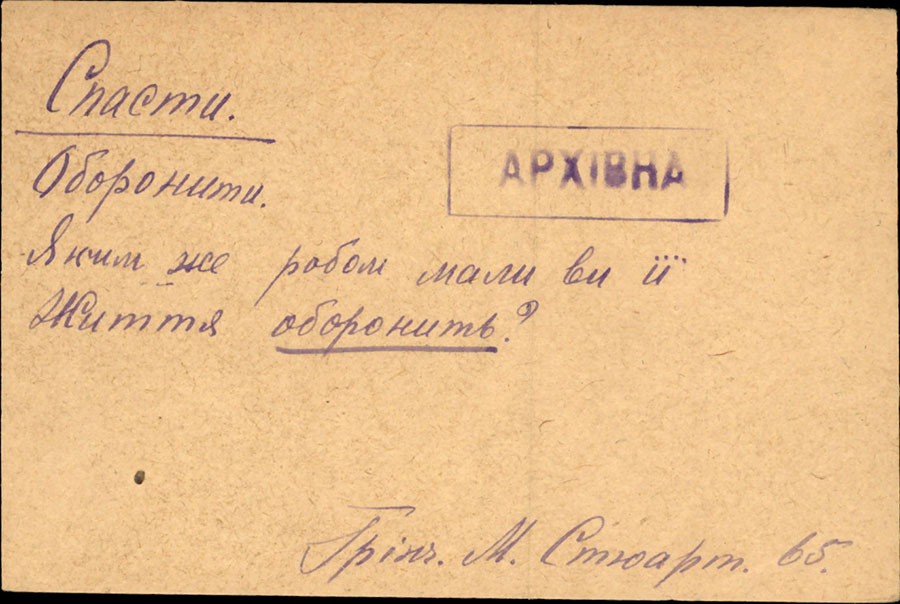 Спасти.
АРХІВНА
Оборонити.
Яким же робом мали ви її
життя оборонить?
Грінч. М. Стюарт. 65.